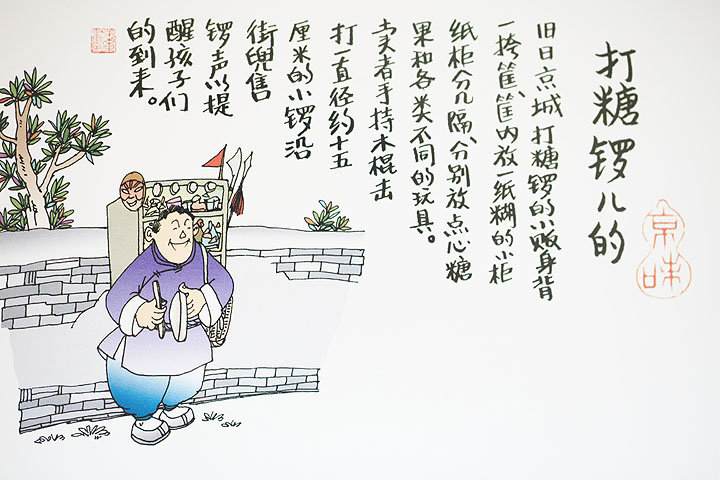 打糖锣儿的
京味
旧日京城打糖锣的小贩身背
一挎筐、筐内放一纸糊的小柜
纸柜分几隔、分别放点心糖
果和各类不同的玩具。
卖者手持木棍击
打一直径约十五
厘米的小锣沿
街兜售
锣声以提
醒孩子们
的到来。